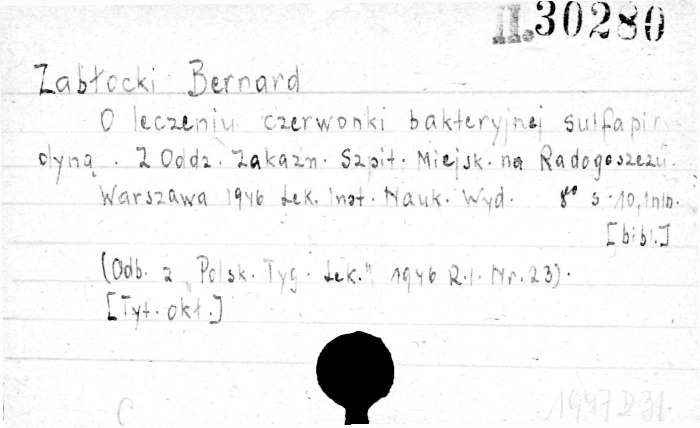 II.30280
Zabłocki Bernard
O leczeniu czerwonki bakteryjnej sulfapir
dyną. Z Oddz. Zakaźn. Szpit. Miejsk. na Radogoszczu.
Warszawa 1946 Lek. Inst. Nauk. Wyd. 8° s. 10,1nlb.
[bibl.]
(Odb. z „Polsk. Tyg. Lek." 1946 R.I. Nr. 23).
[Tyt. okł.]
C 1947 D 31.